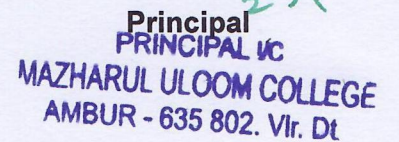 Principal
PRINCIPAL I/C
MAZHARUL ULOOM COLLEGE
AMBUR - 635 802. Vlr. Dt